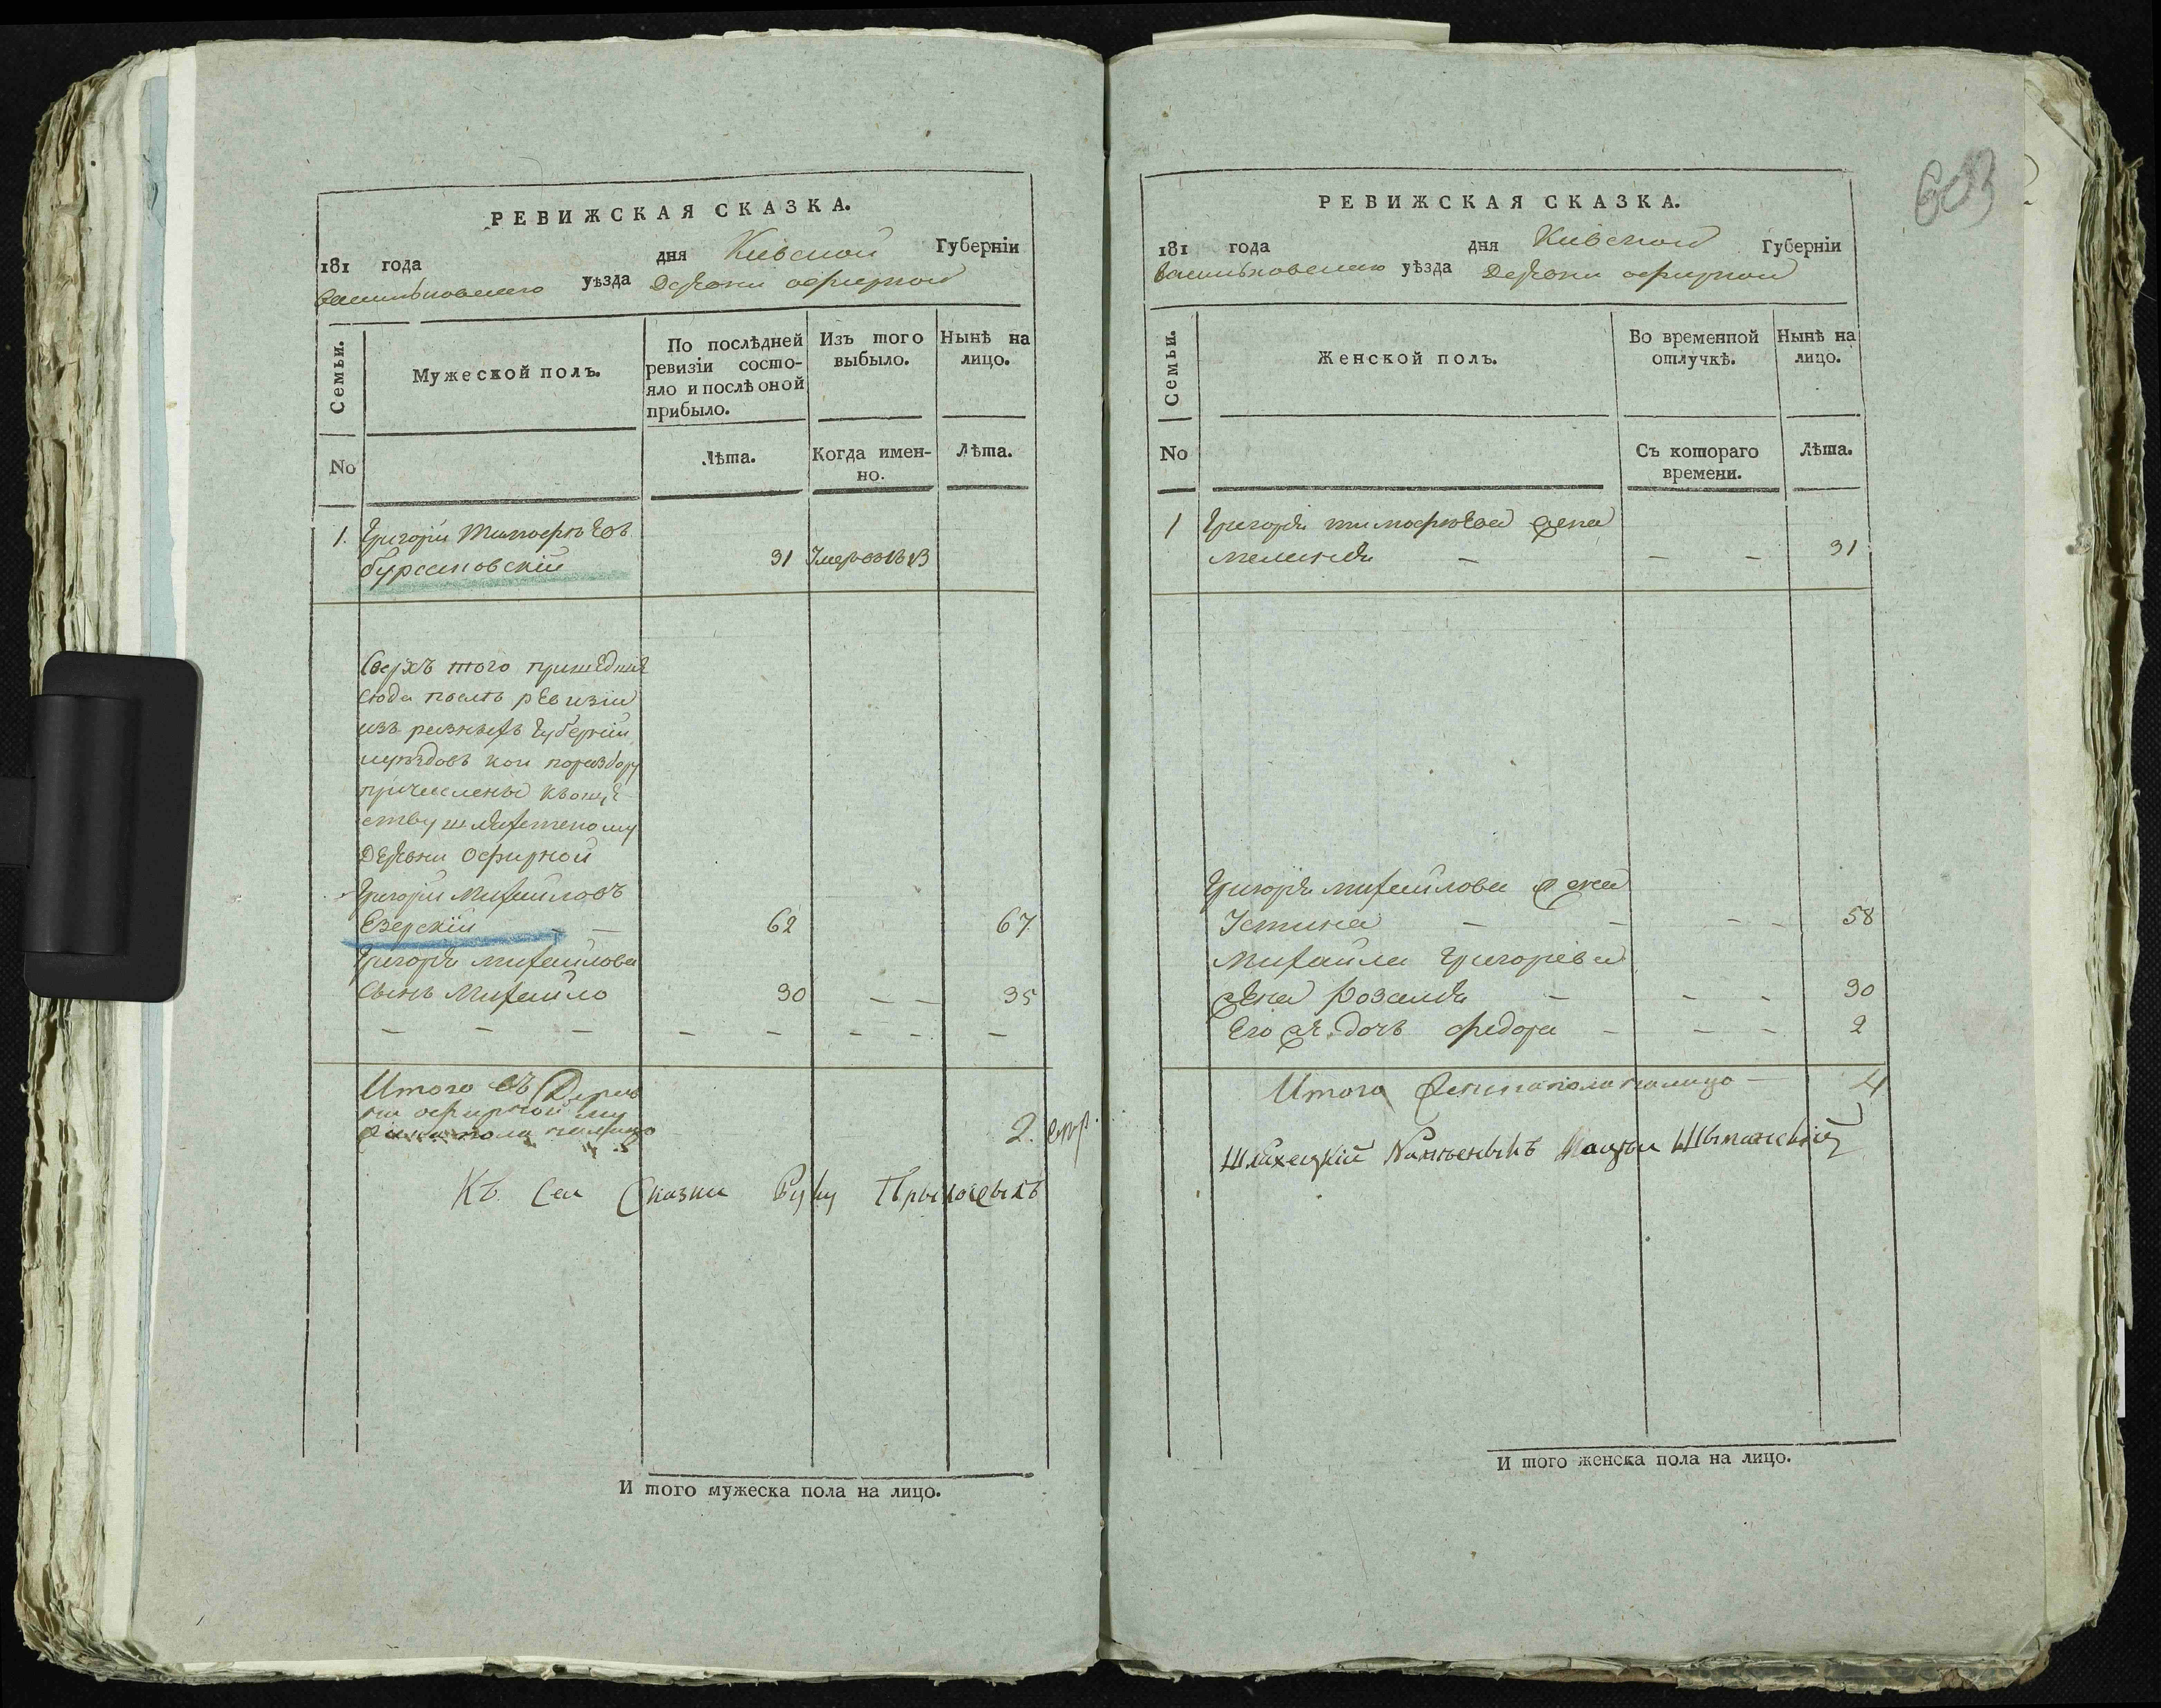 РЕВИЖСКАЯ СКАЗКА.
181 года дня Кіевской Губерніи
Васильковского уѣзда Деревни офирной
Семьи.
Мужеской полъ.
По послѣдней ревизіи состо-
яло и послѣ оной прибыло.
Изъ того выбыло.
Нынѣ на лицо.
No
Лѣта.
Когда имен-
но.
Лѣта.
1. Григорій Тимофѣевъ
бурсаковскій 31 Умер въ 1813
Сверхъ того пришедшія
сюда послѣ ревизіи
изъ разныхъ Губерній
иуѣздовъ кои поразбору
причислены кѡбще
ству шляхетскому
Деревни Офирной
Григорій Михайловъ
Езерскій — — 62 67
Григорія михайлова
Сынъ Михайло 30 — — 35
— — — — — — — —
Итого въ Дерев
ни офирной му
жска пола налицо 2. стр.
Къ Сеи Сказки Руку Прыложылъ
И того мужеска пола на лицо.
603
РЕВИЖСКАЯ СКАЗКА.
181 года дня Кіевской Губерніи
Васильковского уѣзда Деревни офирной
Семьи.
Женской полъ.
Во временной отлучкѣ.
Нынѣ на лицо.
No
Съ котораго времени.
Лѣта.
1 Григорія тимофѣева жена
меланія — — — 31
Григорія михайлова жена
Устина — — — — 58
Михайла Григорьева
жена Розалія — — — 30
Его же дочь федора — — — 2
Итого женска пола налицо — 4
Шляхецкій Шыманскій
И того женска пола на лицо.